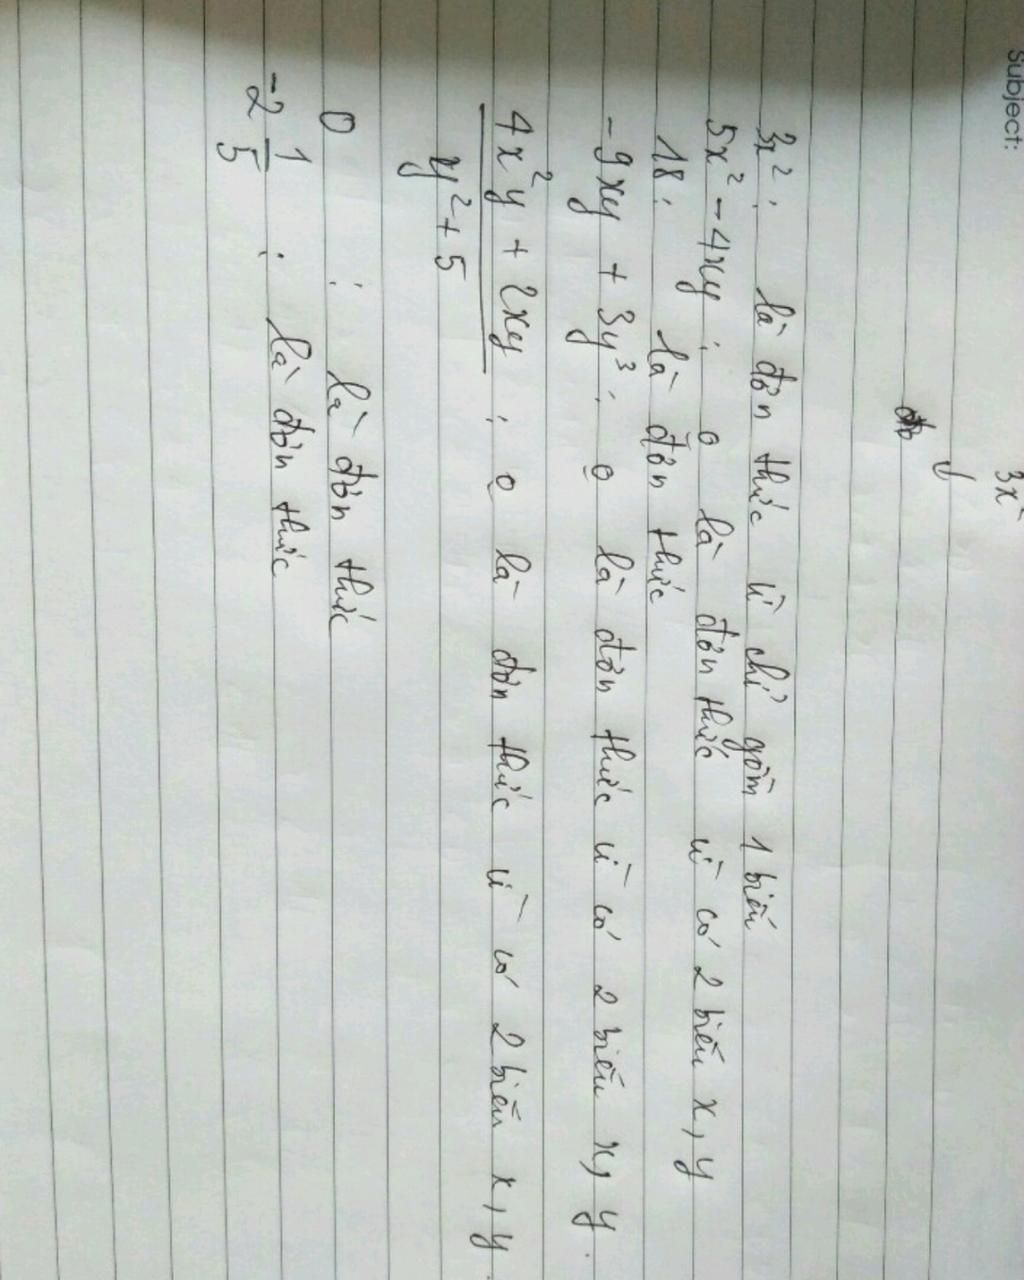 Subject:
3x²
3x²: là đơn thức vì chỉ gồm 1 biến
5x² - 4xy : o là đơn thức vì có 2 biến x, y
18 : là đơn thức
- 9xy + 3y³ : o là đơn thức vì có 2 biến x, y.
4x²y + 2xy : o là đơn thức vì có 2 biến x, y
y² + 5
0 : là đơn thức
-2 1/5 : là đơn thức